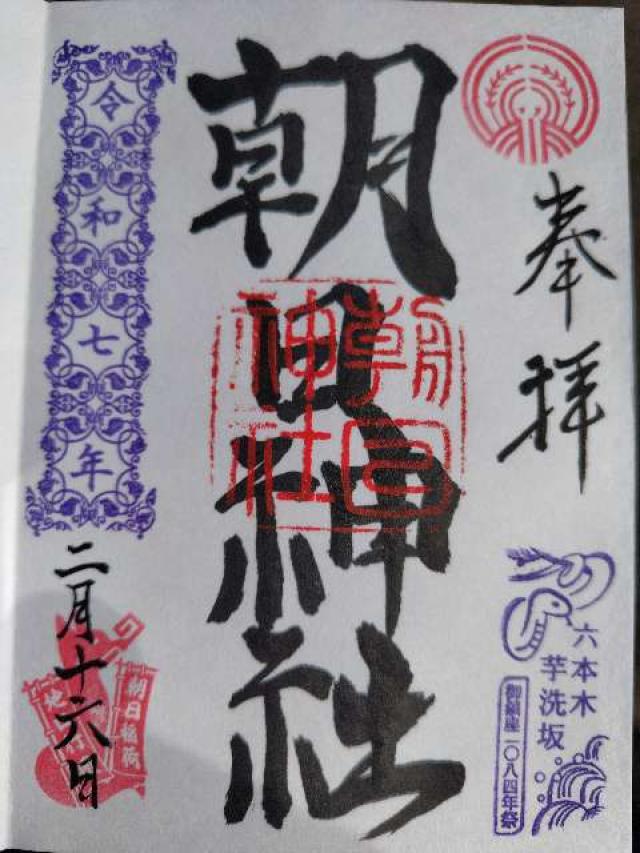 奉拝
朝日神社
朝日神社
六本木
芋洗坂
御鎮座一〇八四年祭
令和七年
二月十六日
朝日稲荷